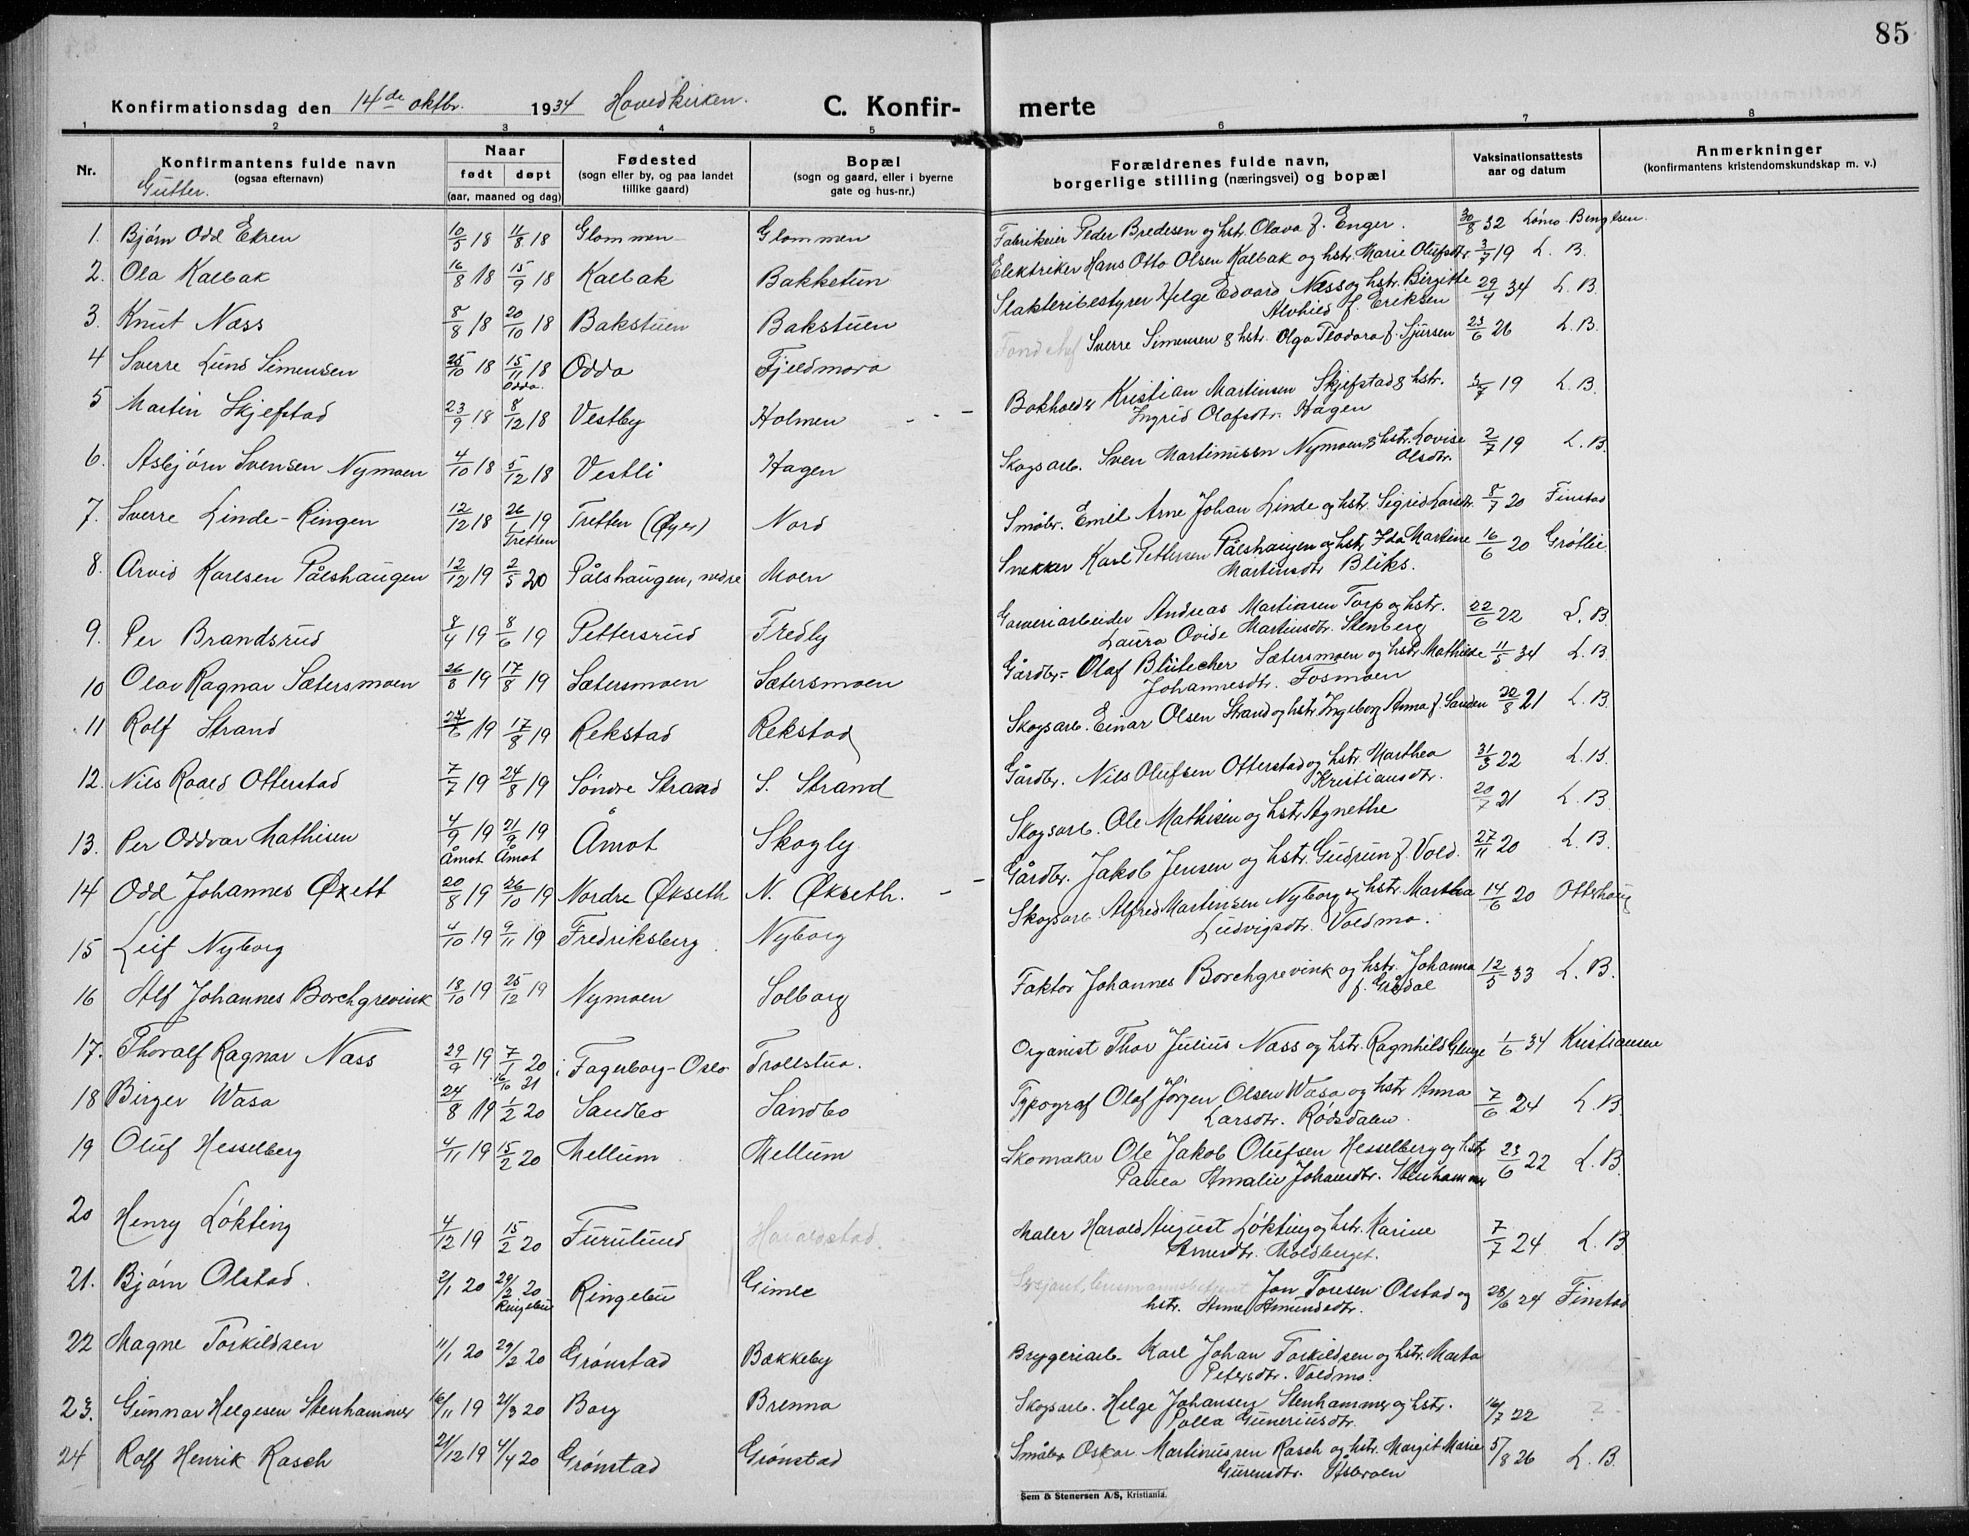 85
Konfirmationsdag den 14de oktbr. 1934 Hovedkirken. C. Konfir- merte
1 2 3 4 5 6 7 8
Nr. Konfirmantens fulde navn (ogsaa efternavn) Naar født døpt (aar, maaned og dag) Fødested (sogn eller by, og paa landet tillike gaard) Bopæl (sogn og gaard, eller i byerne gate og hus-nr.) Forældrenes fulde navn, borgerlige stilling (næringsvei) og bopæl Vaksinationsattests aar og datum Anmerkninger (konfirmantens kristendomskundskap m. v.)
Gutter.
1. Bjørn Odd Ekren 10/5 18 11/8 18 Glommen Glommen Fabrikeier Peder Bredesen og hstr. Olava f. Enger. 30/8 32 Lømo Bengtsen.
2. Ola Kalbak 16/8 18 15/9 18 Kalbak Bakketun Elektriker Hans Otto Olsen Kalbak og hstr. Marie Olufsdtr 3/7 19 L. B.
3. Knut Næss 8/8 18 20/10 18 Bakstuen Bakstuen Slakteribestyrer Helge Edvard Næss og hstr. Birgitte 29/4 34 L. B.
Alvhild f. Eriksen
4 Sverre Lund Simensen 25/10 18 15/11 18 Odda Fjeldmora Sverre Simensen & hstr. Olga Teodora f. Sjursen 23/6 26 L. B.
Odda.
5 Martin Skjefstad 23/9 18 8/12 18 Vestby Holmen Bokholder Kristian Martinsen Skjefstad & hstr. 3/7 19 L. B.
Ingrid Olafsdtr. Hagen
6. Asbjørn Svensen Nymoen 4/10 18 5/12 18 Vestli Hagen Skogsarb. Sven Martinusen Nymoen & hstr. Lovise 2/7 19 L. B.
Olsdtr.
7. Sverre Linde-Ringen 12/12 18 26/1 19 Tretten (Øyer) Nord Småbr. Emil Arne Johan Linde og hstr. Sigrid Larsdtr. 8/7 20 Finstad
Tretten
8. Arvid Karlsen Pålshaugen 12/12 19 2/5 20 Pålshaugen, nedre Moen Snekker Karl Pettersen Pålshaugen og hstr. Ida Martine 16/6 20 Grøtlie.
Martinsdtr Bliks.
9. Per Brandsrud 8/4 19 8/6 19 Pettersrud Fredly Garveriarbeider Andreas Martinsen Torp og hstr. 22/6 22 L. B.
Laura Ovide Martinsdtr. Stenberg
10 Olav Ragnar Sætersmoen 26/3 19 17/8 19 Sætersmoen Sætersmoen Gårdbr. Olaf Blütecher Sætersmoen og hstr Mathilde 11/5 34 L. B.
Johannesdtr. Fosmoen
11 Rolf Strand 27/6 19 17/8 19 Rekstad Rekstad Skogsarb. Einar Olsen Strand og hstr Ingeborg Anna f. Sanden 20/8 21 L. B.
12. Nils Roald Otterstad 7/7 19 24/8 19 Søndre Strand S. Strand Gårdbr. Nils Olufsen Otterstad og hstr. Marthea 31/3 22 L. B.
Kristiansdtr.
13. Per Oddvar Mathisen 4/9 19 21/9 19 Åmot Skogly Skogsarb. Ole Mathisen og hstr. Agnethe 20/7 21 L. B.
Åmot Åmot
14 Odd Johannes Øxett 20/8 19 26/10 19 Nordre Økseth N. Økseth. Gårdbr. Jakob Jensen og hstr. Gudrun f. Vold. 27/11 20 L. B.
15 Leif Nyborg 4/10 19 9/11 19 Fredriksberg Nyborg Skogsarb Alfred Martinsen Nyborg og hstr. Martha 14/6 20 Ottshaug
Ludvigsdtr. Voldmo.
16 Alf Johannes Borchgrevink 18/10 19 25/12 19 Nymoen Solborg Faktor Johannes Borchgrevink og hstr. Johanna 12/5 33 L. B.
f. Grådal
17. Thoralf Ragnar Næss 29/9 19 7/1 20 i Fagerborg-Oslo Trollstua. Organist Thor Julius Næss og hstr. Ragnhild 1/6 34 Kristiansen
18 Birger Wasa 24/8 19 1/2 20 Sandbo Sandbo Typograf Olaf Jörgen Olsen Wasa og hstr Anna 7/6 24 L. B.
Larsdtr. Rødsdalen.
19 Oluf Hesselberg 4/11 19 15/2 20 Mellum Mellum Skomaker Ole Jakob Olufsen Hesselberg og hstr 23/6 22 L. B.
Paula Amalie Johansdtr. Stenhammer
20 Henry Løkting 4/12 19 15/2 20 Furulund Haraldstad. Maler Harald August Løkting og hstr. Karine 7/7 24 L. B
Arnesdtr. Moldberget.
21. Bjørn Olstad. 2/1 20 29/2 20 Ringebu Gimle Sersjant, lensmannsbetjent Jon Toresen Olstad og 28/6 24 Finstad
Ringebu hstr. Anne Amundsdtr.
22 Magne Torkildsen 11/1 20 29/2 20 Grønstad Bakkeby Bryggeriarb. Karl Johan Torkildsen og hstr. Marta
Petersdtr. Voldmo.
23. Gunnar Helgesen Stenhammer 16/11 19 21/3 20 Borg Brenna Skogsarb. Helge Johansen Stenhammer og hstr. 16/7 22 ?
Palla Guneriusdtr.
24 Rolf Henrik Rasch 21/12 19 4/4 20 Grønstad Grønstad Småbr Oskar Martinussen Rasch og hstr. Margit Marie 5/8 26 L. B.
Sem & Stenersen A/S, Kristiania.